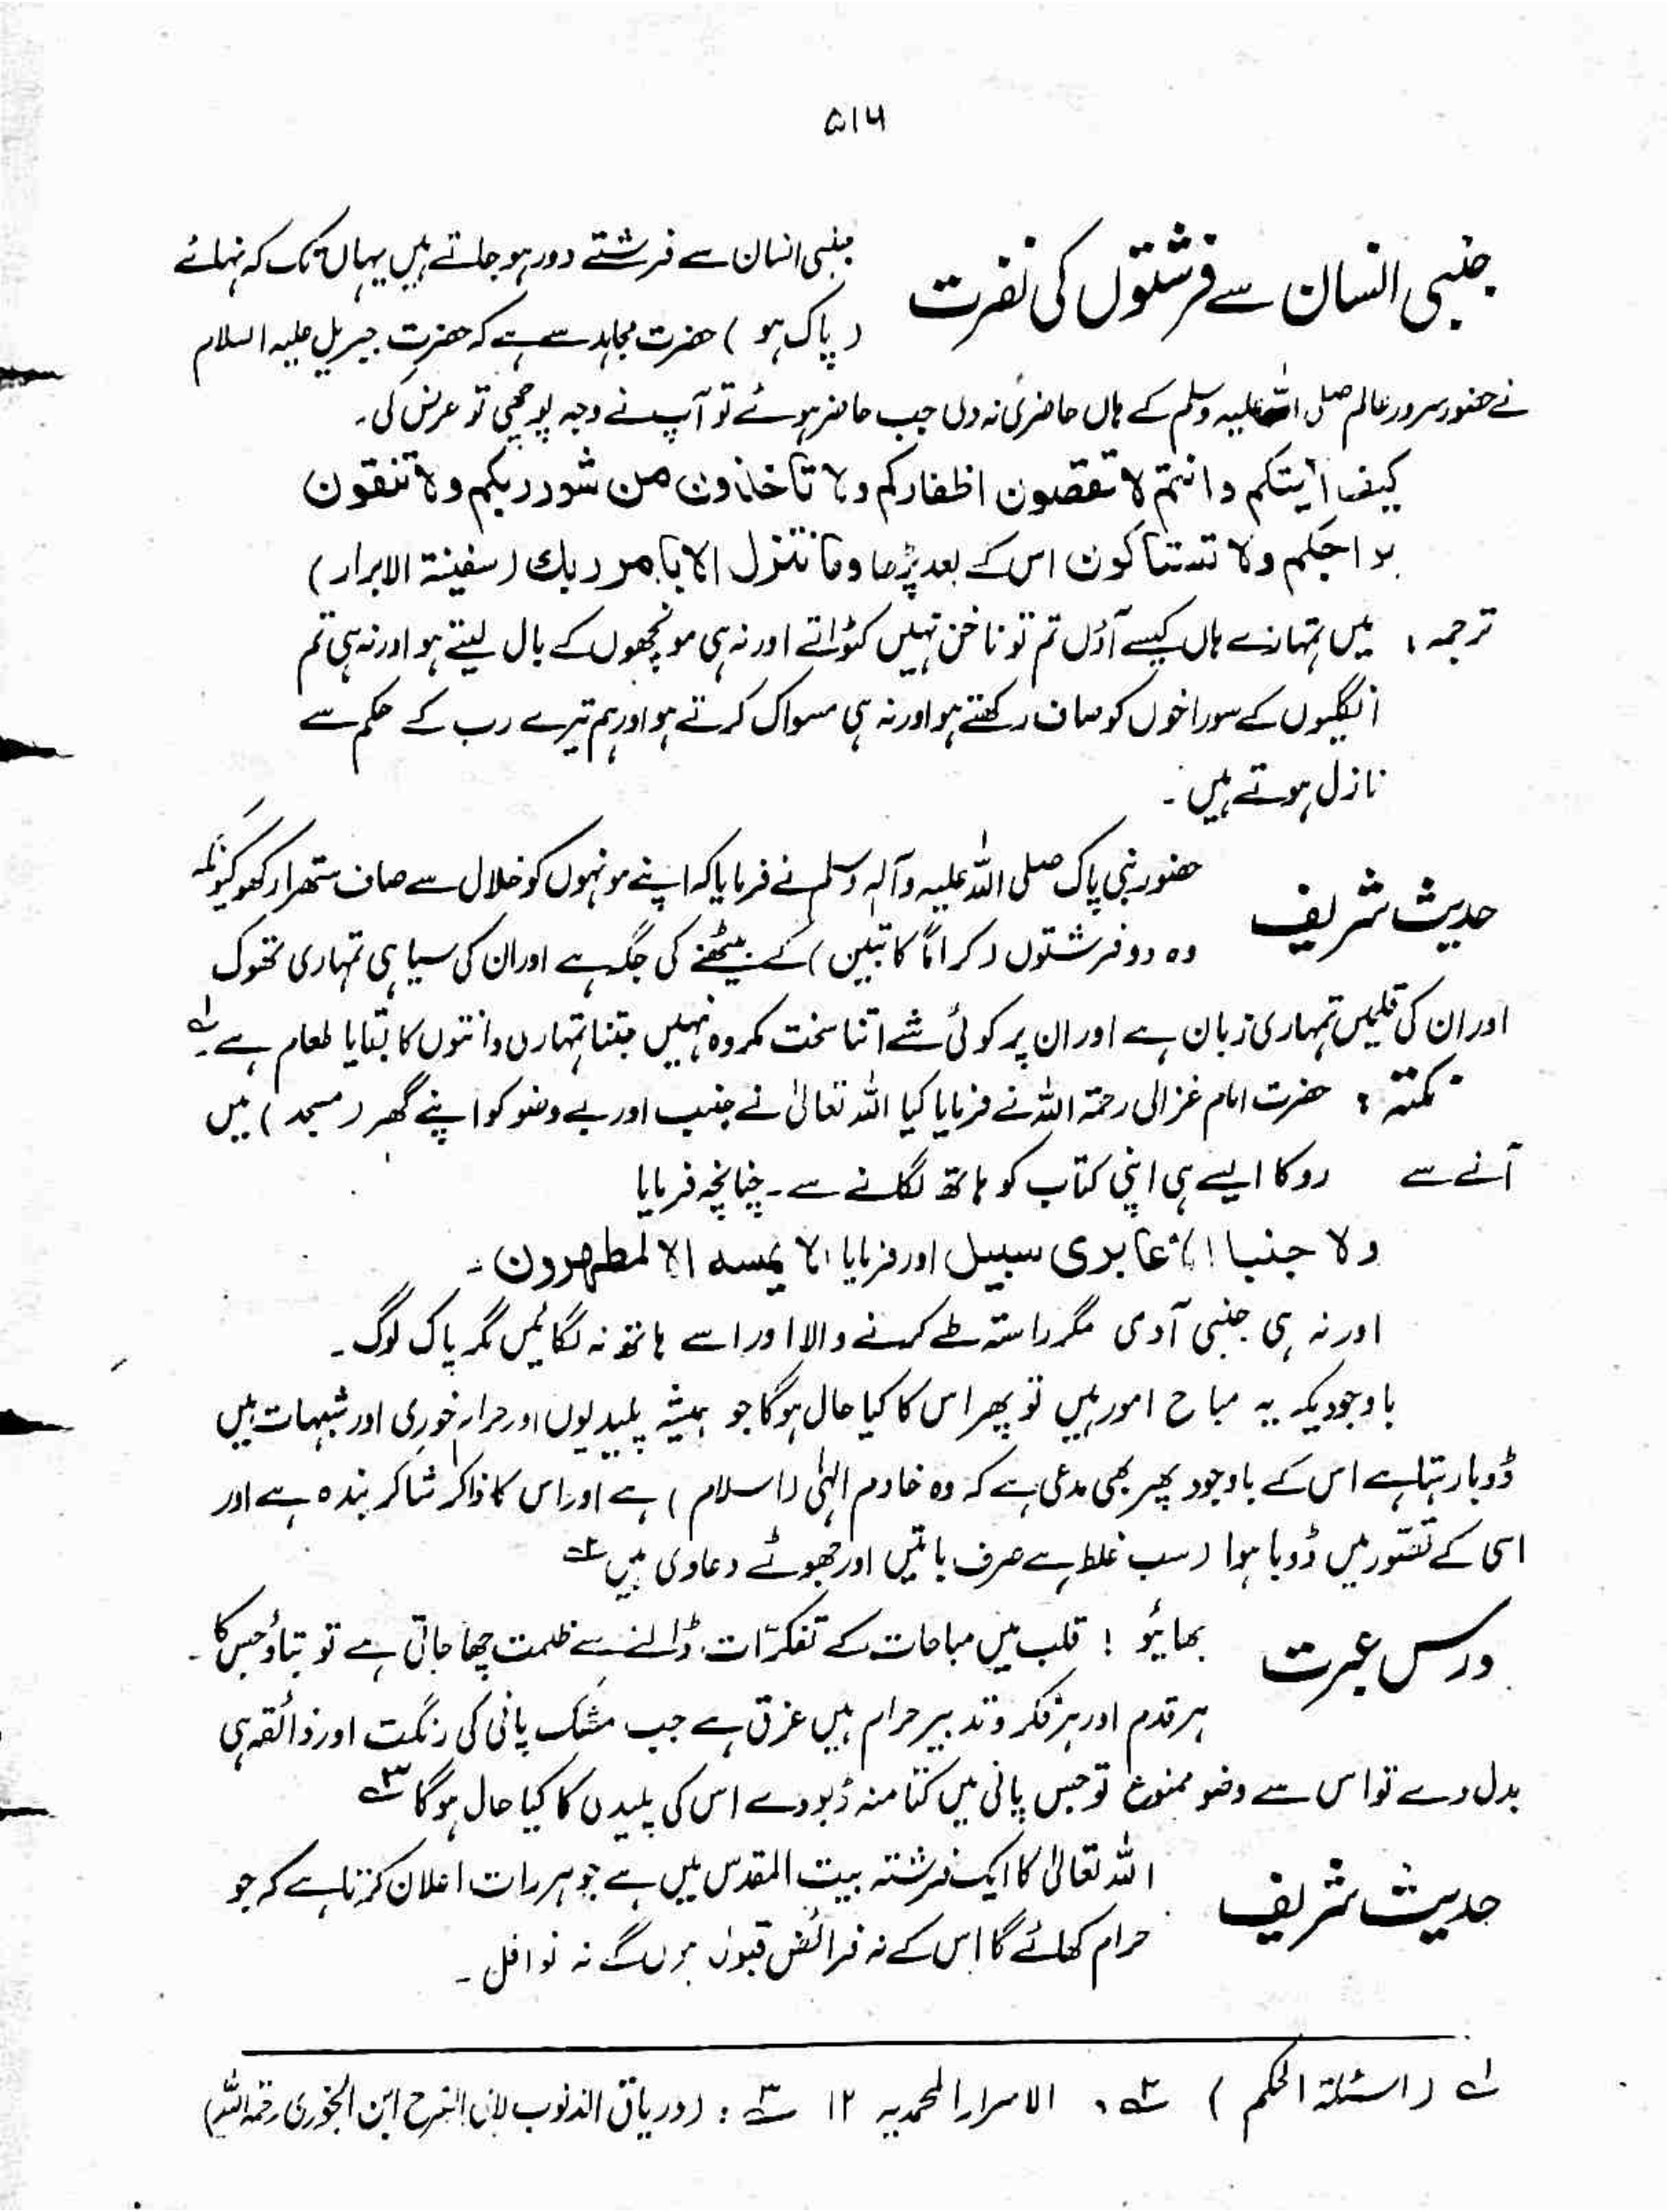 ۵۱۶
جنبی انسان سے فرشتوں کی نفرت
جنبی انسان سے فرشتے دور ہو جاتے ہیں یہاں تک کہ نہائے
(پاک ہو) حضرت مجاہد سے ہے کہ حضرت جبریل علیہ السلام
نے حضور سرور عالم صلی اللہ علیہ وسلم کے ہاں حاضری نہ دی جب حاضر ہوئے تو آپ نے وجہ پوچھی تو عرض کی۔
کیف اٰیتکم وانتم لا تقصون اظفارکم ولا تأخذون من شوربکم ولا تنقون
براجکم ولا تستاکون اس کے بعد پڑھا وما نتنزل الا بامر ربك (سفینۃ الابرار)
ترجمہ: میں تمہارے ہاں کیسے آؤں تم تو ناخن نہیں کٹواتے اور نہ ہی مونچھوں کے بال لیتے ہو اور نہ ہی تم
انگلیوں کے سوراخوں کو صاف رکھتے ہو اور نہ ہی مسواک کرتے ہو اور ہم تیرے رب کے حکم سے
نازل ہوتے ہیں۔
حدیث شریف
حضور نبی پاک صلی اللہ علیہ وآلہ وسلم نے فرمایا کہ اپنے مونہوں کو خلال سے صاف ستھرا رکھو کیونکہ
وہ دو فرشتوں (کراماً کاتبین) کے بیٹھنے کی جگہ ہے اور ان کی سیاہی تمہاری تھوک
اور ان کی قلمیں تمہاری زبان ہے اور ان پر کوئی شے اتنا سخت مکروہ نہیں جتنا تمہاری دانتوں کا بقایا طعام ہے۔ ۱؎
نکتہ: حضرت امام غزالی رحمۃ اللہ نے فرمایا کیا اللہ تعالیٰ نے جنب اور بے وضو کو اپنے گھر (مسجد) میں
آنے سے روکا ایسے ہی اپنی کتاب کو ہاتھ لگانے سے۔ چنانچہ فرمایا
ولا جنبا الا عابری سبیل اور فرمایا لا یمسہ الا لمطہرون۔
اور نہ ہی جنبی آدمی مگر راستہ طے کرنے والا اور اسے ہاتھ نہ لگائیں مگر پاک لوگ۔
باوجودیکہ یہ مباح امور ہیں تو پھر اس کا کیا حال ہوگا جو ہمیشہ پلیدیوں اور حرام خوری اور شبہات میں
ڈوبا رہتا ہے اس کے باوجود پھر بھی مدعی ہے کہ وہ خادم الٰہی (اسلام) ہے اور اس کا ذاکر شاکر بندہ ہے اور
اسی کے تصور میں ڈوبا ہوا (سب غلط ہے صرف باتیں اور جھوٹے دعاوی ہیں ۲؎
درس عبرت
بھائیو! قلب میں مباحات کے تفکرّات ڈالنے سے ظلمت چھا جاتی ہے تو بتاؤ جس کا
ہر قدم اور ہر فکر و تدبیر حرام میں غرق ہے جب مشک پانی کی رنگت اور ذائقہ ہی
بدل دے تو اس سے وضو ممنوع تو جس پانی میں کتا منہ ڈبو دے اس کی پلیدی کا کیا حال ہوگا ۳؎
حدیث شریف
اللہ تعالیٰ کا ایک فرشتہ بیت المقدس میں ہے جو ہر رات اعلان کرتا ہے کہ جو
حرام کھائے گا اس کے نہ فرائض قبول ہوں گے نہ نوافل۔
۱؎ (اسئلۃ الحکم) ۲؎: الاسرار المحمدیہ ۱۲ ۳؎: (دریاق الذنوب لابی الفرح ابن الجوزی رحمۃ اللہ)